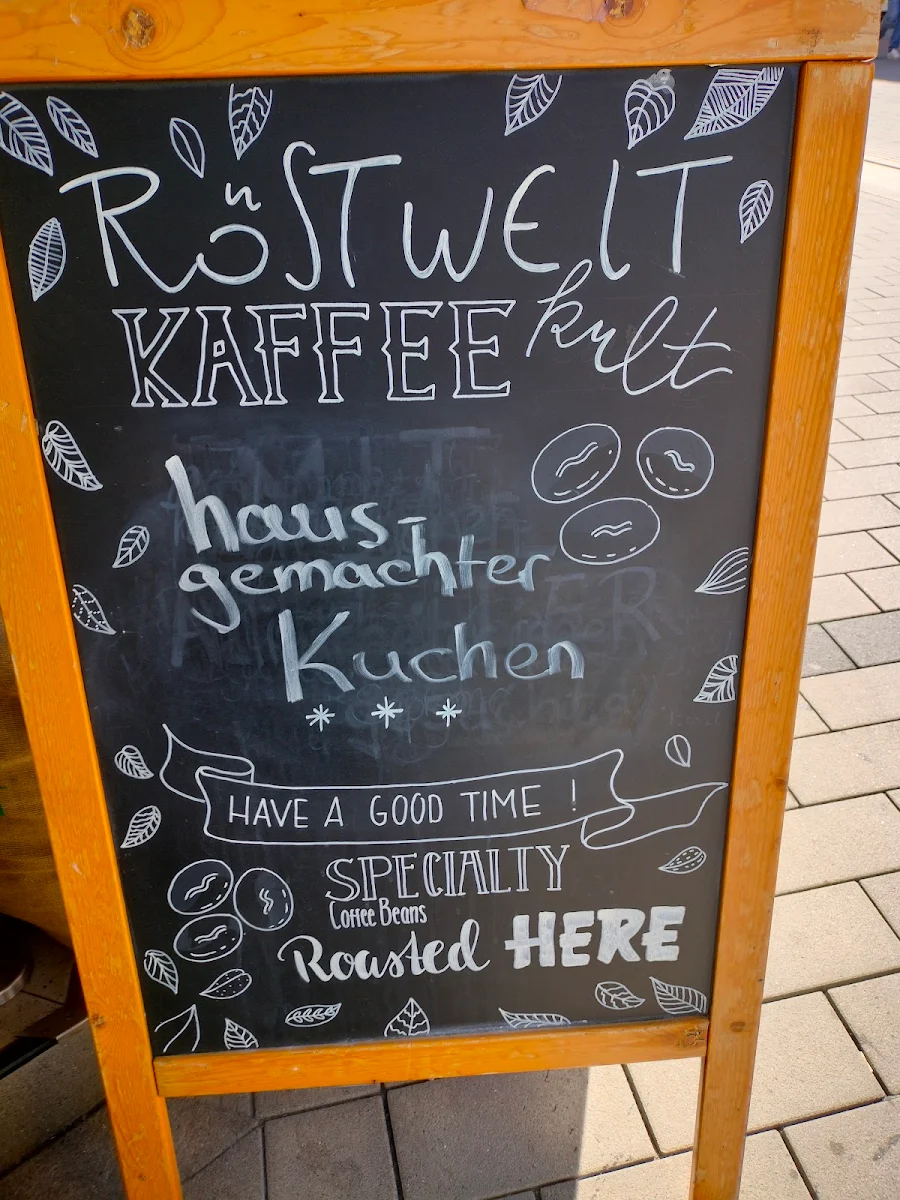 RöSTWELT
KAFFEE kult
haus-
gemachter
Kuchen
* * *
HAVE A GOOD TIME !
SPECIALTY
Coffee Beans
Roasted HERE